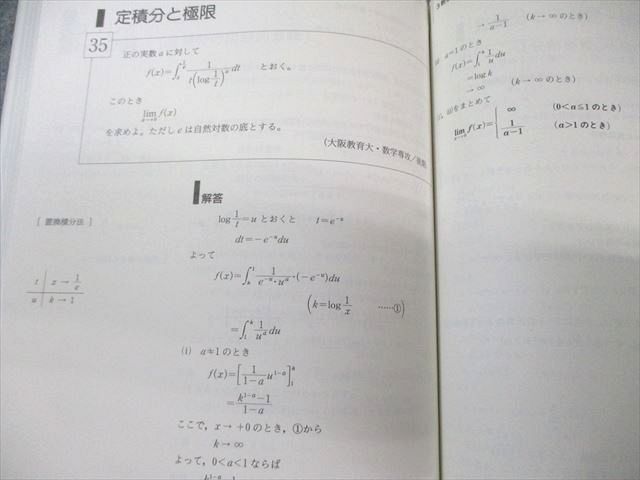 定積分と極限
35
正の実数aに対して
f(x)=∫_x^{1/e} 1/(t(log 1/t)^a) dt とおく。
このとき
lim_{x→+0} f(x)
を求めよ。ただしeは自然対数の底とする。
(大阪教育大・数学専攻/後期)
解答
[置換積分法]
log 1/t = u とおくと t=e^{-u}
dt=−e^{-u}du
よって
f(x)=∫_k^1 1/(e^{-u}・u^a)・(−e^{-u})du
(k=log 1/x ……①)
t | x → 1/e
u | k → 1
=∫_1^k 1/u^a du
(i) a≠1のとき
f(x)=[1/(1−a) u^{1−a}]_1^k
=(k^{1−a}−1)/(1−a)
ここで，x→+0のとき，①から
k→∞
よって，0<a<1ならば
→ 1/(a−1) (k→∞のとき)
a=1のとき
f(x)=∫_1^k 1/u du
=log k
→∞ (k→∞のとき)
をまとめて
lim_{x→+0} f(x)={ ∞ (0<a≦1のとき)
1/(a−1) (a>1のとき)